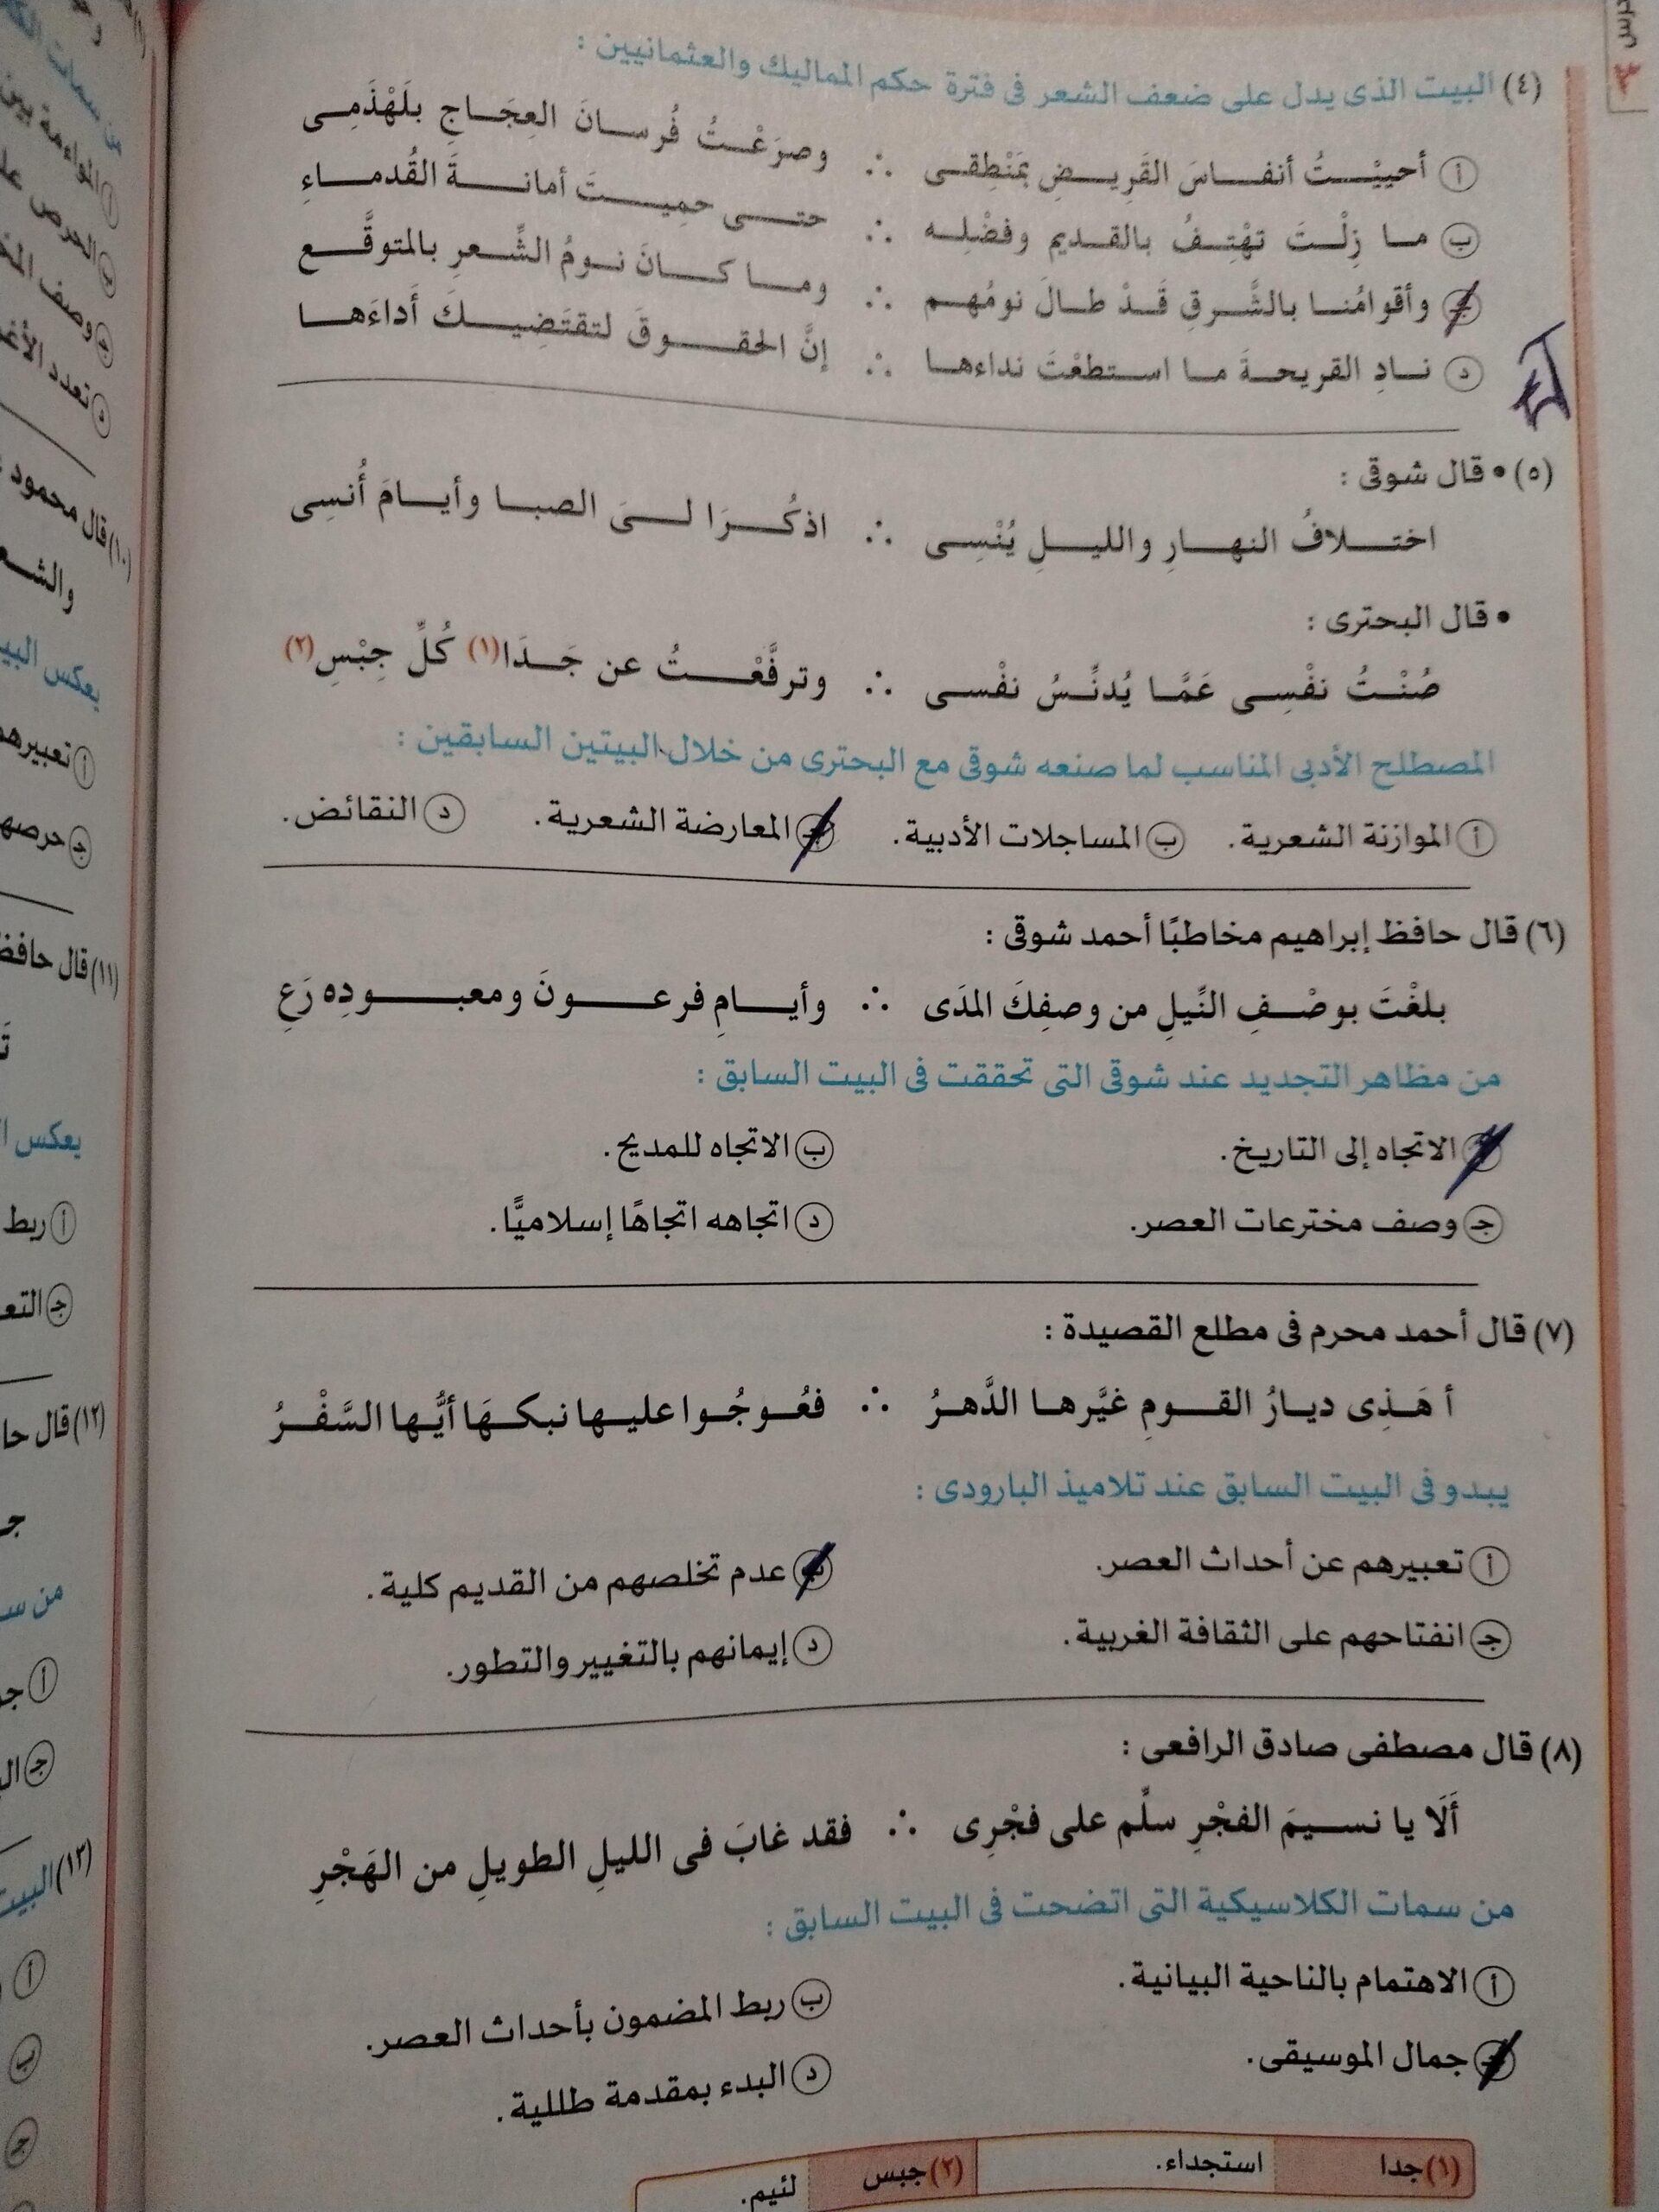 درس
٣
(٤) البيت الذى يدل على ضعف الشعر فى فترة حكم المماليك والعثمانيين :
أ أحييْتُ أنفاسَ القَرِيضِ بمَنْطِقى ∴ وصرَعْتُ فُرسانَ العِجَاجِ بلَهْذَمِى
ب ما زِلْتَ تهْتِفُ بالقديم وفضْلِه ∴ حتى حمِيتَ أمانةَ القُدماءِ
جـ وأقوامُنا بالشَّرقِ قَدْ طالَ نومُهم ∴ وما كانَ نومُ الشِّعرِ بالمتوقَّع
د نادِ القريحةَ ما استطعْتَ نداءها ∴ إنَّ الحقوقَ لتقتَضِيكَ أداءَها
(٥) • قال شوقى :
اختلافُ النهارِ والليلِ يُنْسِى ∴ اذكُرَا لىَ الصبا وأيامَ أُنسِى
• قال البحترى :
صُنْتُ نفْسِى عَمَّا يُدنِّسُ نفْسى ∴ وترفَّعْتُ عن جَدَا(١) كُلِّ جِبْسِ(٢)
المصطلح الأدبى المناسب لما صنعه شوقى مع البحترى من خلال البيتين السابقين :
أ الموازنة الشعرية. ب المساجلات الأدبية. جـ المعارضة الشعرية. د النقائض.
(٦) قال حافظ إبراهيم مخاطبًا أحمد شوقى :
بلغْتَ بوصْفِ النِّيلِ من وصفِكَ المدَى ∴ وأيامِ فرعونَ ومعبودِه رَعِ
من مظاهر التجديد عند شوقى التى تحققت فى البيت السابق :
أ الاتجاه إلى التاريخ. ب الاتجاه للمديح.
جـ وصف مخترعات العصر. د اتجاهه اتجاهًا إسلاميًّا.
(٧) قال أحمد محرم فى مطلع القصيدة :
أ هَذِى ديارُ القومِ غيَّرها الدَّهرُ ∴ فعُوجُوا عليها نبكهَا أيُّها السَّفْرُ
يبدو فى البيت السابق عند تلاميذ البارودى :
أ تعبيرهم عن أحداث العصر. ب عدم تخلصهم من القديم كلية.
جـ انفتاحهم على الثقافة الغربية. د إيمانهم بالتغيير والتطور.
(٨) قال مصطفى صادق الرافعى :
أَلَا يا نسيمَ الفجْرِ سلِّم على فجْرِى ∴ فقد غابَ فى الليلِ الطويلِ من الهَجْرِ
من سمات الكلاسيكية التى اتضحت فى البيت السابق :
أ الاهتمام بالناحية البيانية. ب ربط المضمون بأحداث العصر.
جـ جمال الموسيقى. د البدء بمقدمة طللية.
(١) جدا استجداء. (٢) جبس لئيم.
المواءمة بين
وصف
تعدد
(١٠) قال محمود
يعكس البي
(١١) قال حافظ
أ ربط
(١٢) قال حا
من س
(١٣) البيت